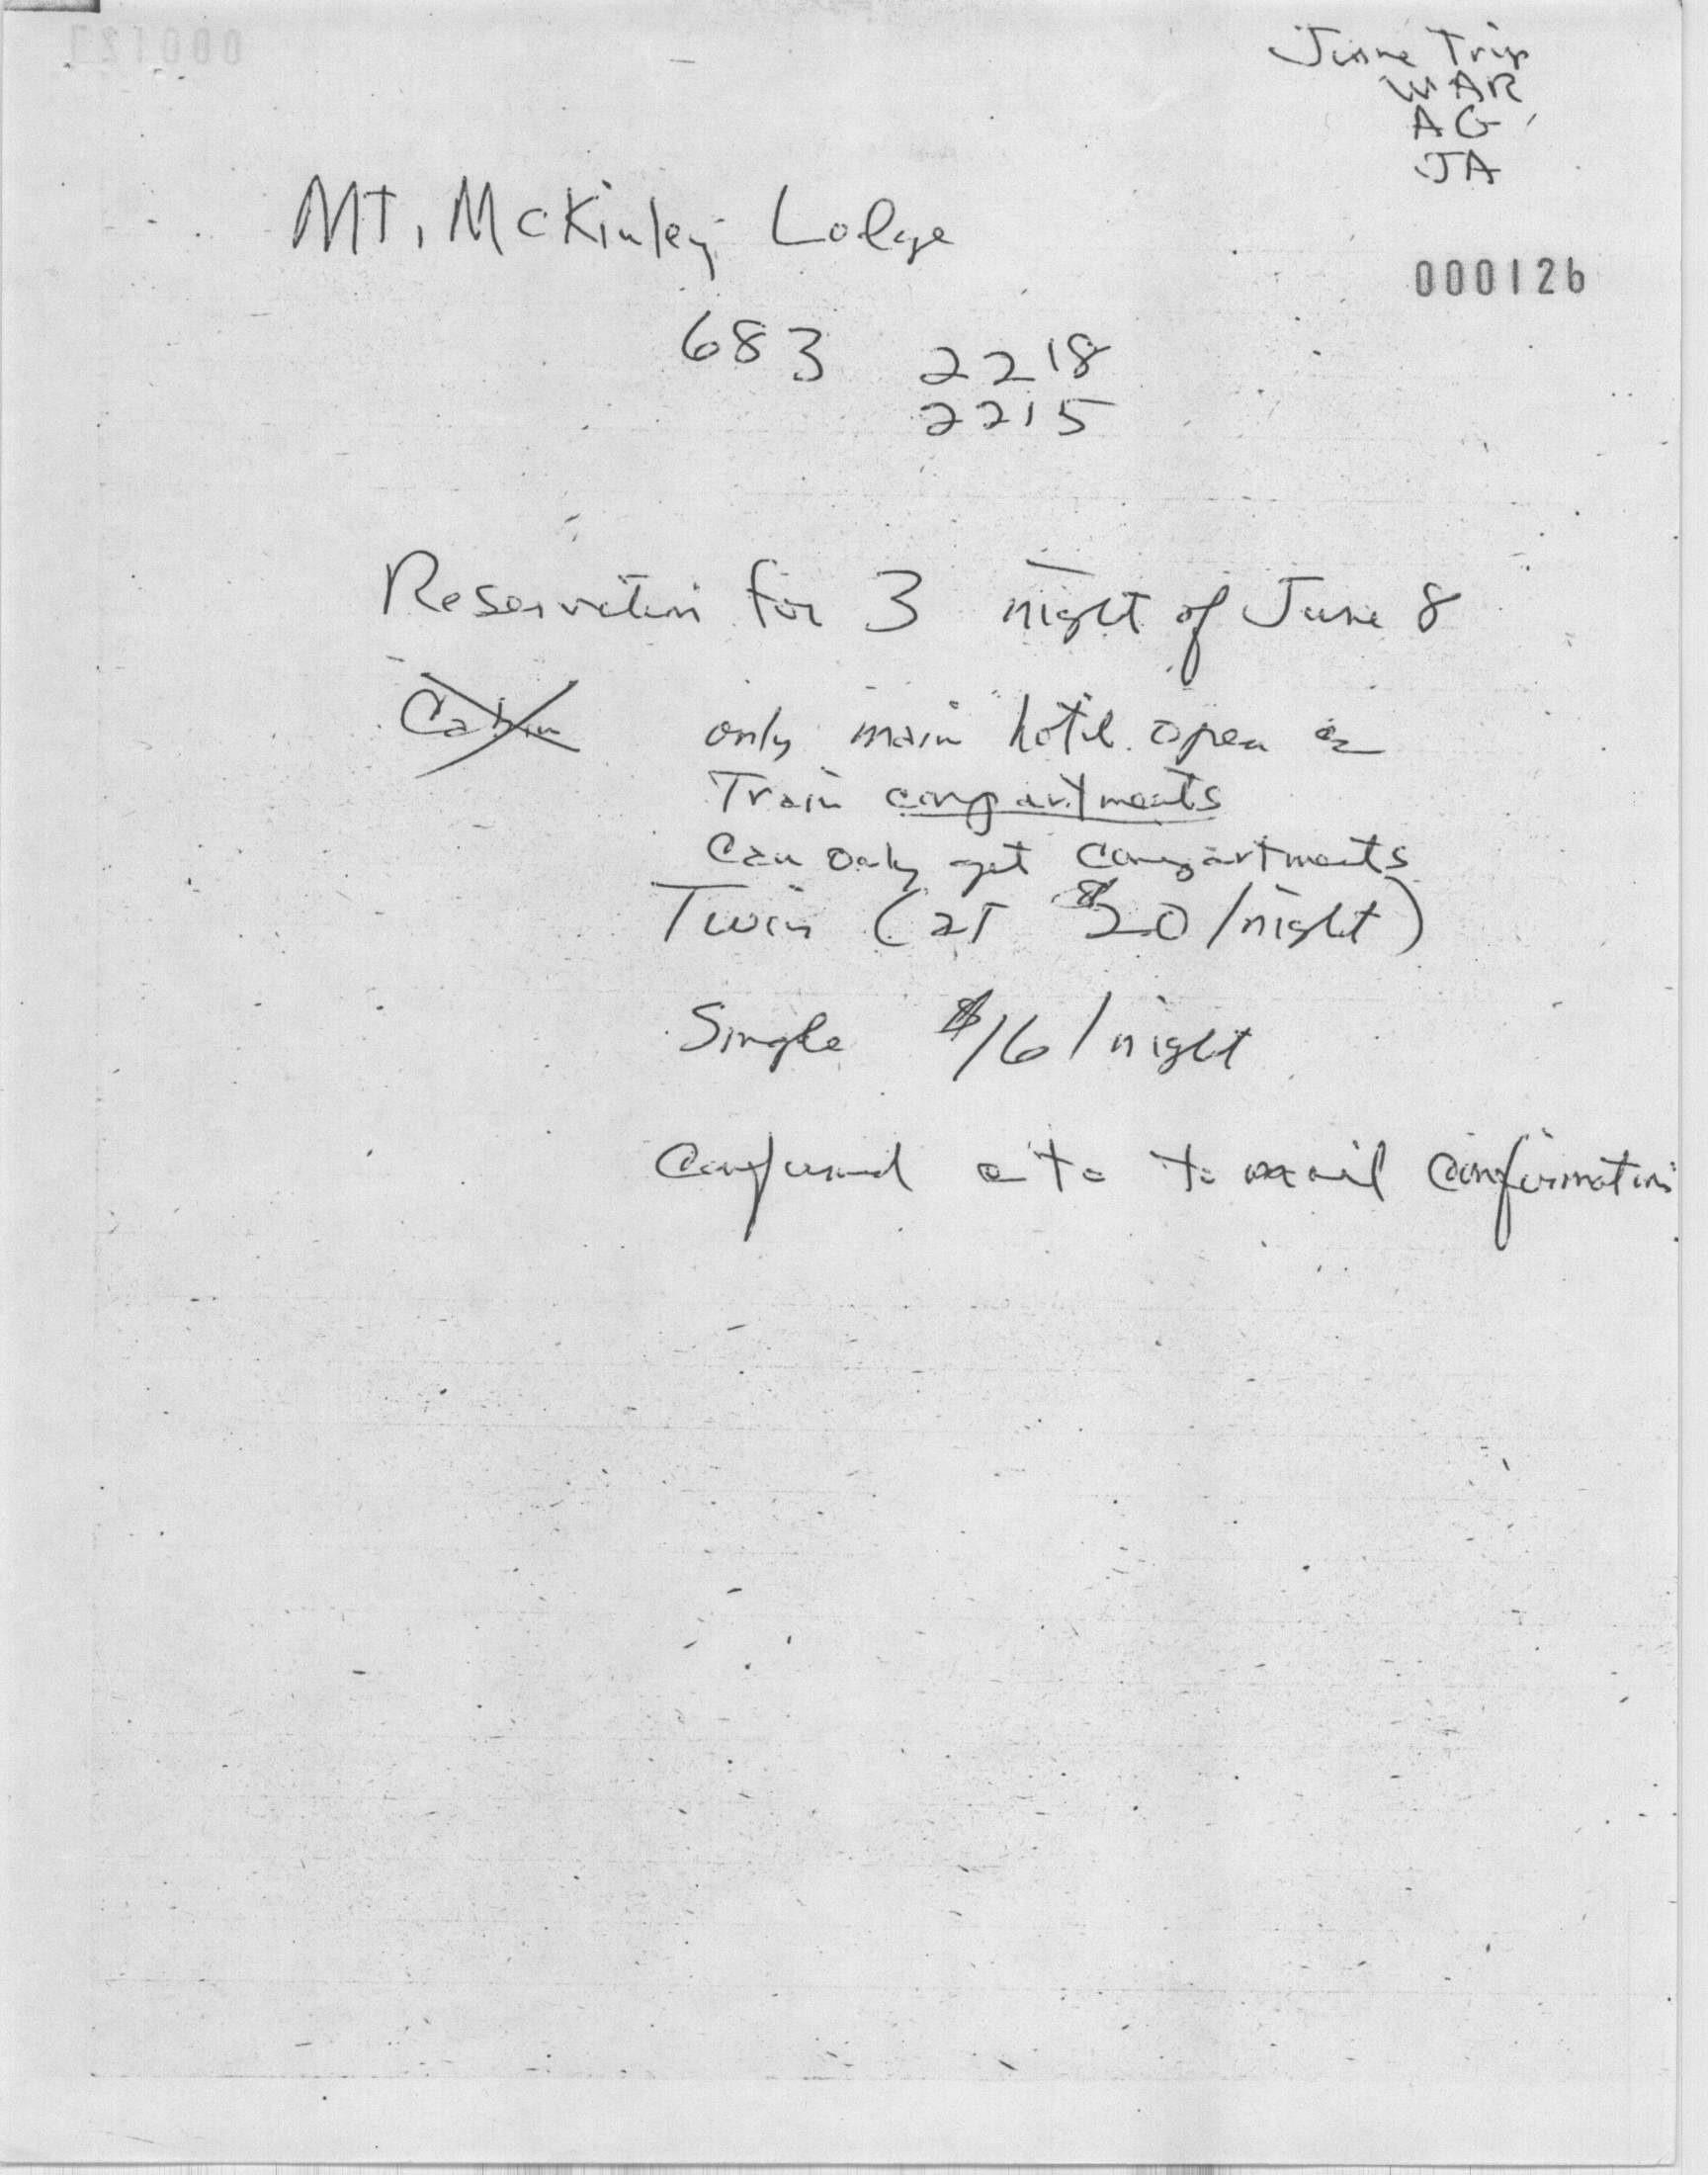 June Trip
WAR
AG
JA
Mt. McKinley Lodge
000126
683 2218
2215
Reservation for 3 night of June 8
Cabin only main hotel open or
Train compartments
Can only get compartments
Twin (at $20/night)
Single $16/night
Confirmed to mail confirmation